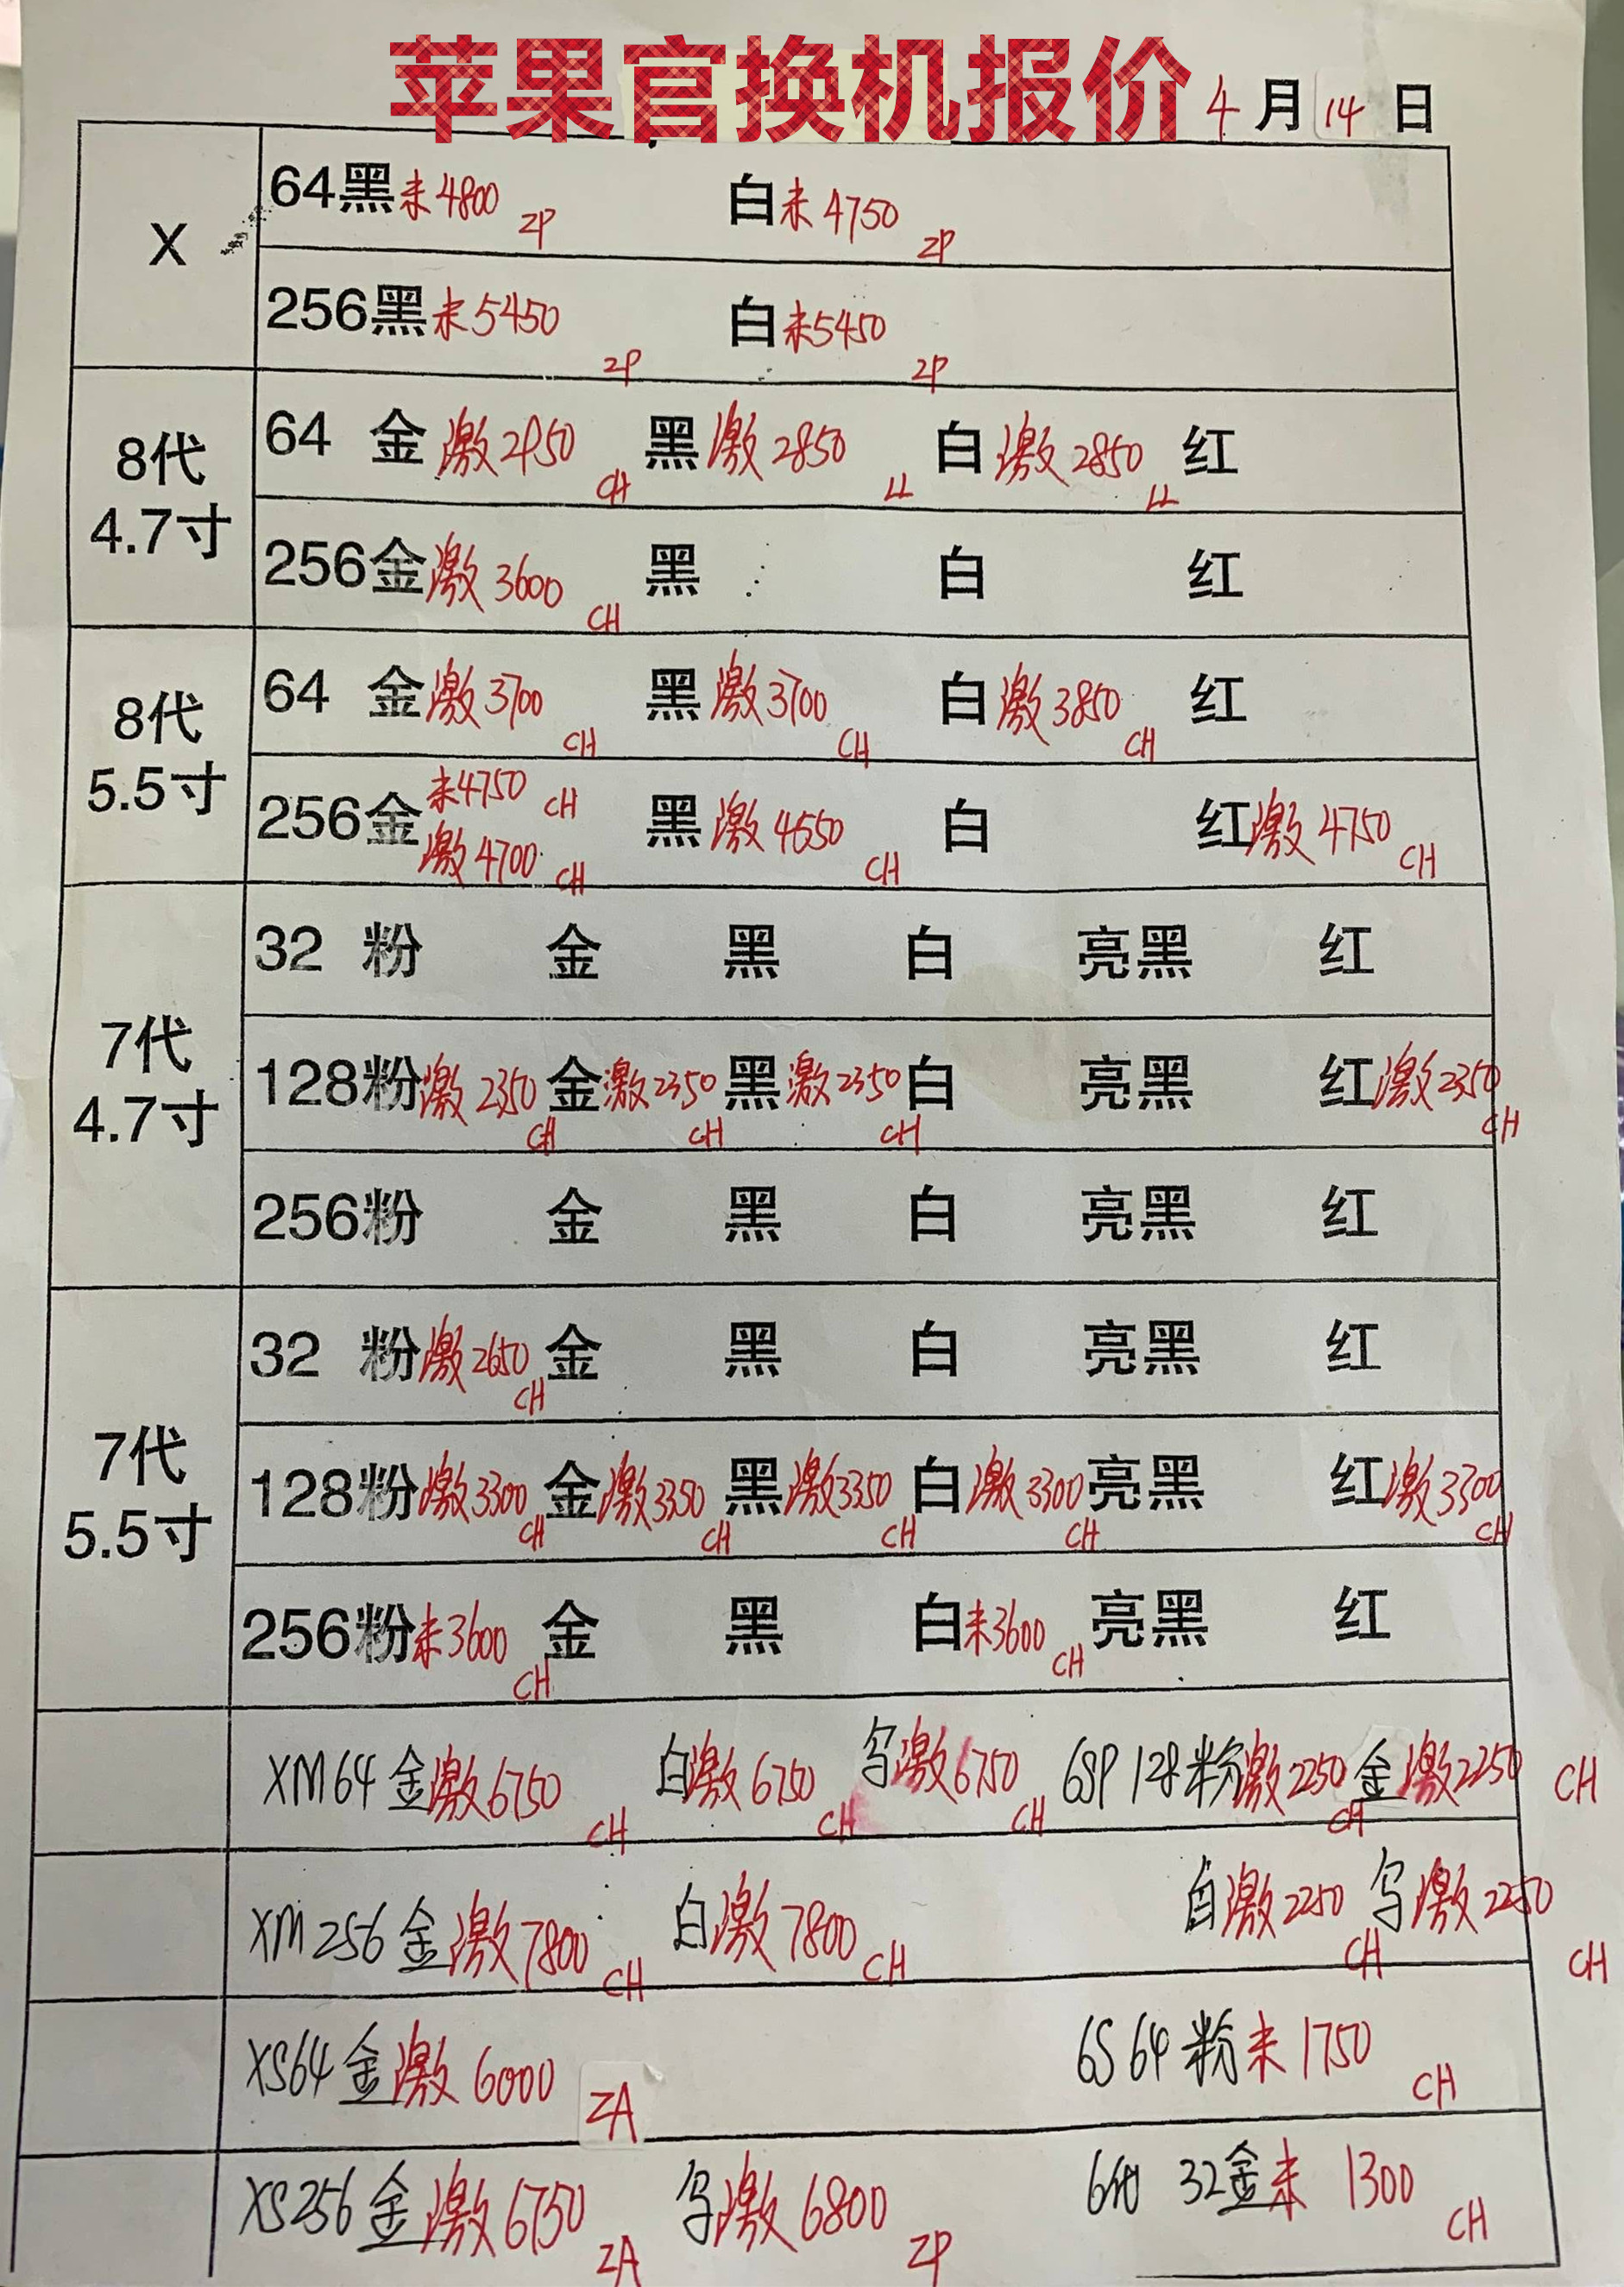 苹果官换机报价 4月14日
X
64黑未4800 ZP 白未4750 ZP
256黑未5450 ZP 白未5450 ZP
8代
4.7寸
64 金激2950 CH 黑激2850 LL 白激2850 LL 红
256金激3600 CH 黑 白 红
8代
5.5寸
64 金激3700 CH 黑激3700 CH 白激3850 CH 红
256金未4750 CH 激4700 CH 黑激4650 CH 白 红激4750 CH
7代
4.7寸
32 粉 金 黑 白 亮黑 红
128粉激2350 CH 金激2350 CH 黑激2350 CH 白 亮黑 红激2350 CH
256粉 金 黑 白 亮黑 红
7代
5.5寸
32 粉激2650 CH 金 黑 白 亮黑 红
128粉激3300 CH 金激3350 CH 黑激3350 CH 白激3300 CH 亮黑 红激3300 CH
256粉未3600 CH 金 黑 白未3600 CH 亮黑 红
XM64金激6750 CH 白激6750 CH 激6750 CH 6SP 128粉激2250 CH 金激2250 CH
XM256金激7800 CH 白激7800 CH 白激2250 CH 激2250 CH
XS64金激6000 ZA 6S 64粉未1750 CH
XS256金激6750 ZA 激6800 ZP 6代 32金未1300 CH